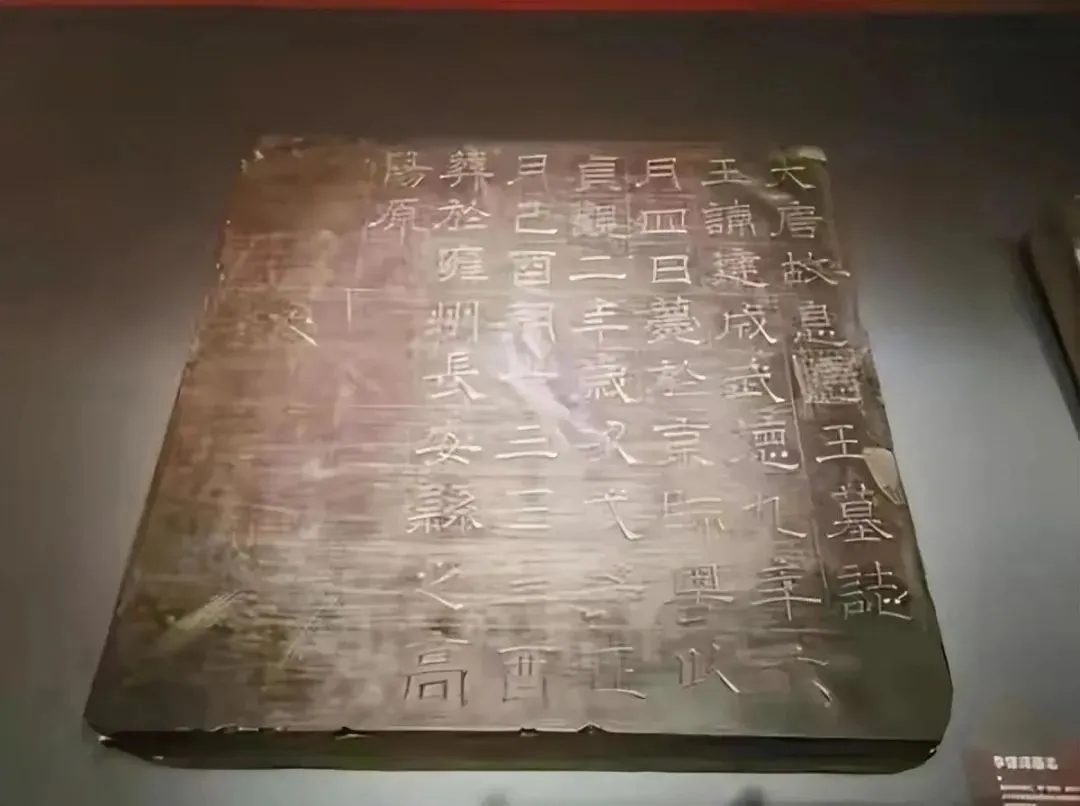 大唐故息隱王墓誌
王諱建成武德九年六
月四日薨於京師粵以
貞觀二年歲次戊子正
月己酉朔十三日辛酉
葬於雍州長安縣之高
陽原